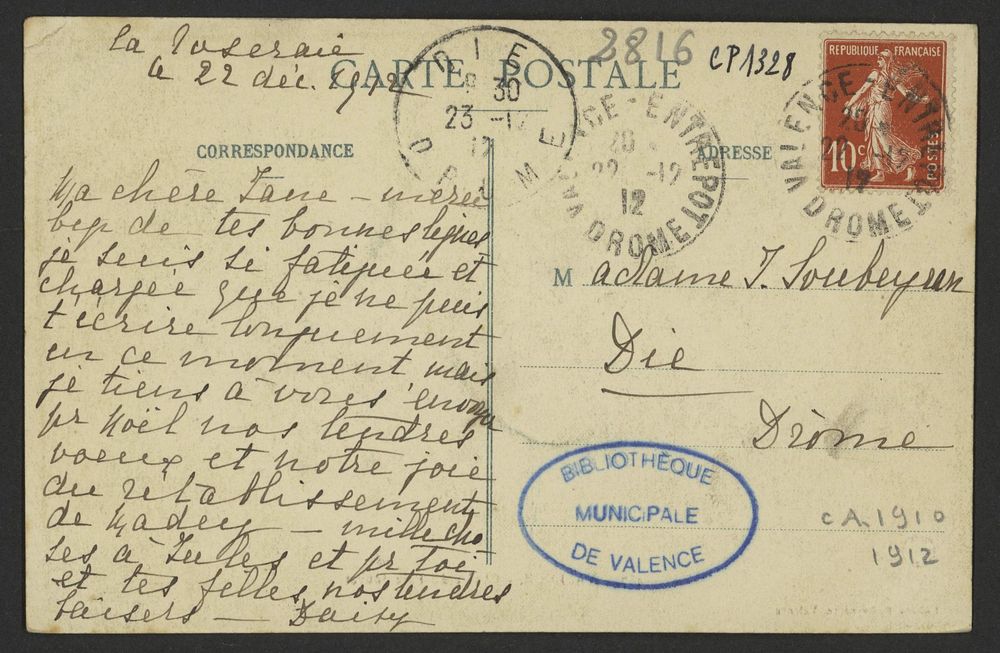 La Roseraie
le 22 déc. 1912
CARTE POSTALE
2816
CP1328
CORRESPONDANCE
ADRESSE
REPUBLIQUE FRANÇAISE
10c
POSTES
DIE
8 30
23 -12
12
DROME
VALENCE-ENTREPOT
20
22 -12
12
DROME
VALENCE-ENTREPOT
20
22 -12
12
DROME
Ma chère Jane - merci
bcp de tes bonnes lignes
je suis si fatiguée et
chargée que je ne puis
t'écrire longuement
en ce moment mais
je tiens à vous envoyer
pr Noël nos tendres
voeux et notre joie
du rétablissement
de Madey - mille cho
ses à Jules et pr toi
et tes filles, nos tendres
baisers - Daisy
Madame J. Soubeyran
Die
Drôme
BIBLIOTHÈQUE
MUNICIPALE
DE VALENCE
CA.1910
1912